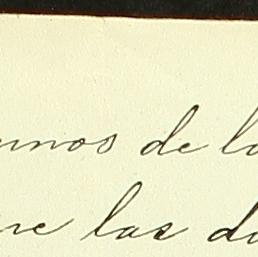 unos de la
ne las da